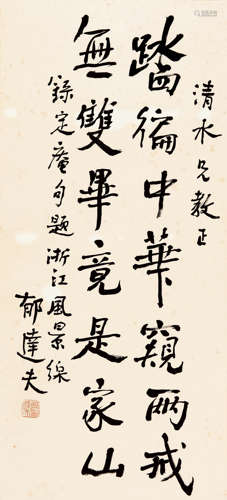 清水兄教正
踏徧中華窺兩戒
無雙畢竟是家山
錄定庵句題浙江風景線
郁達夫